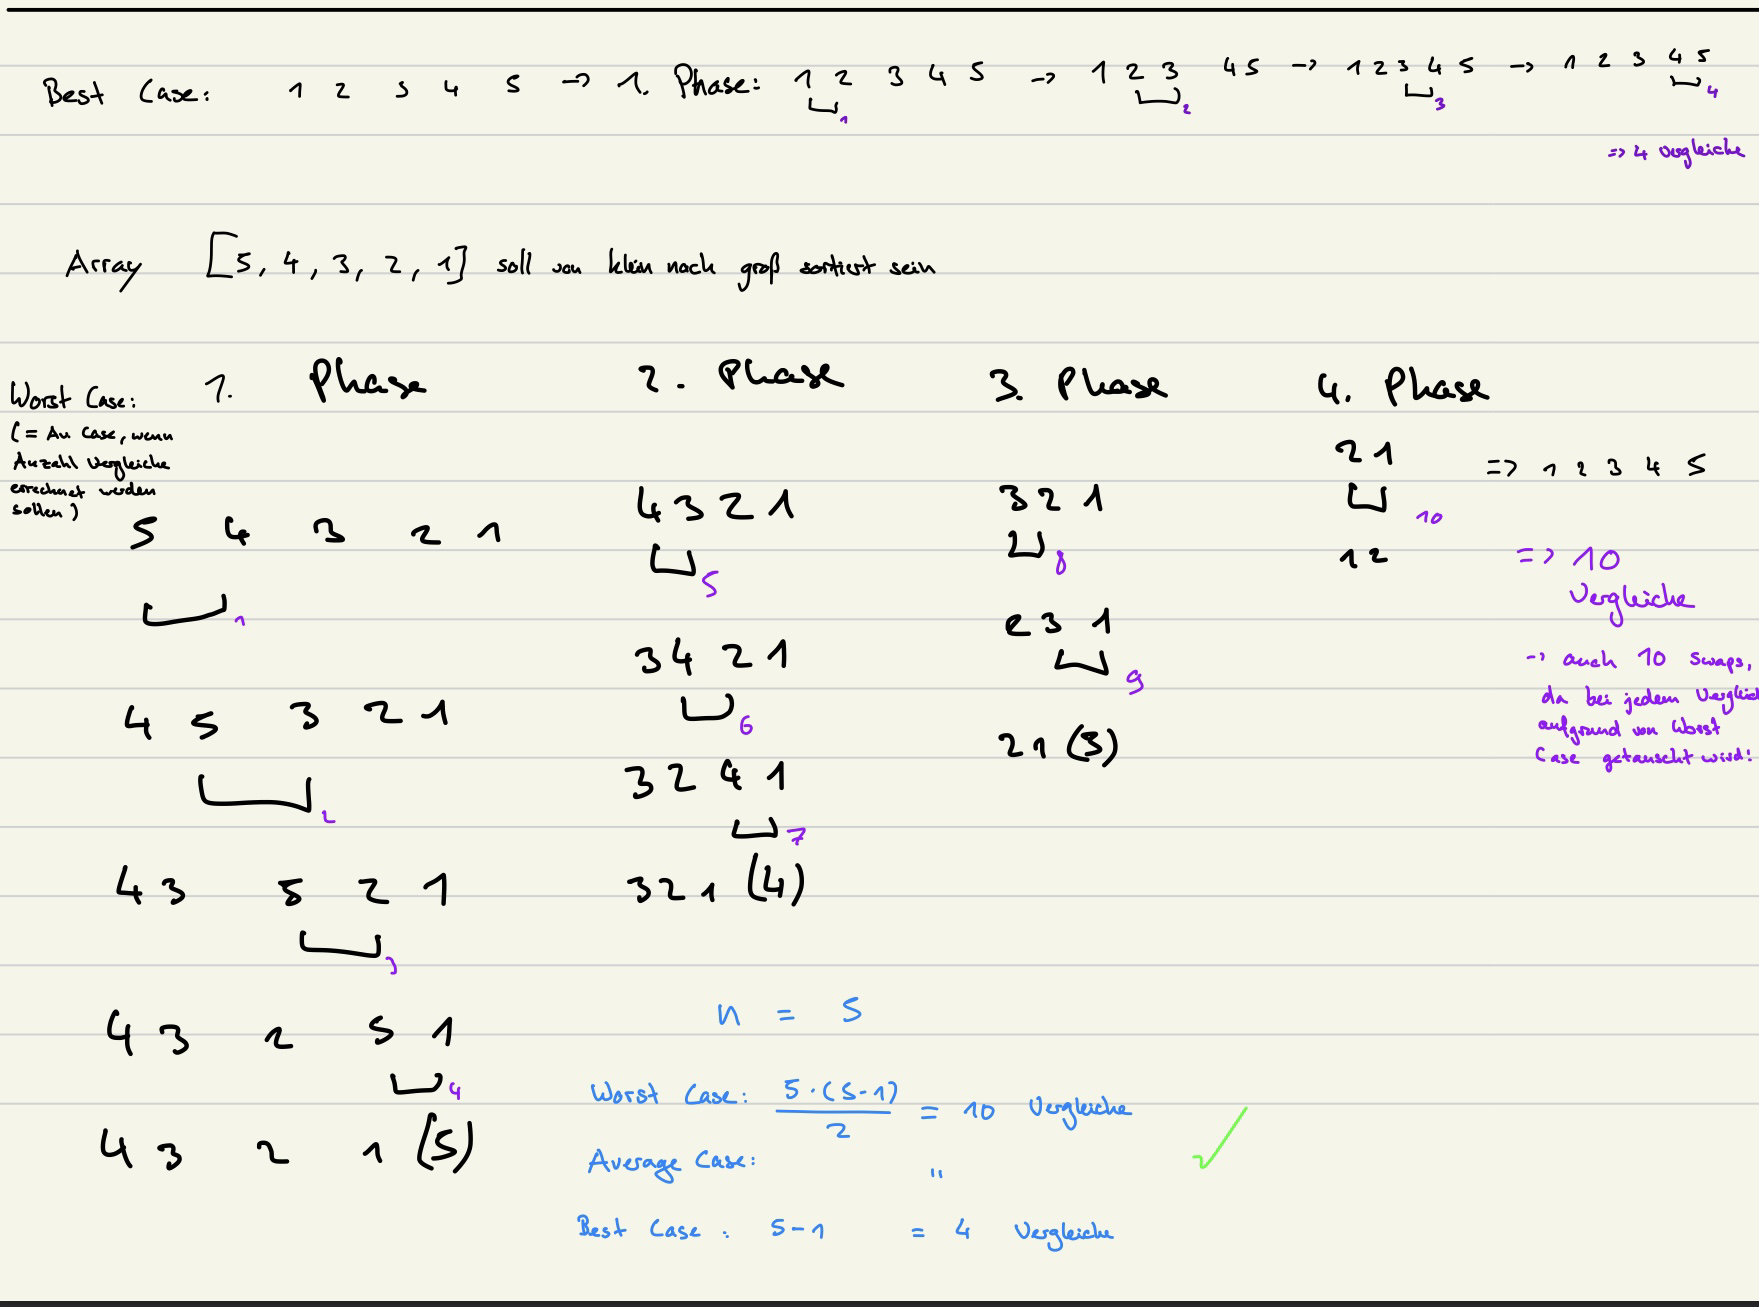 Best Case: 1 2 3 4 5 -> 1. Phase: 1 2 3 4 5 -> 1 2 3 4 5 -> 1 2 3 4 5 -> 1 2 3 4 5
1 2 3 4
=> 4 Vergleiche
Array [5, 4, 3, 2, 1] soll von klein nach groß sortiert sein
Worst Case:
(= Av Case, wenn
Anzahl Vergleiche
errechnet werden
sollen)
1. Phase
5 4 3 2 1
1
4 5 3 2 1
2
4 3 5 2 1
3
4 3 2 5 1
4
4 3 2 1 (5)
2. Phase
4 3 2 1
5
3 4 2 1
6
3 2 4 1
7
3 2 1 (4)
3. Phase
3 2 1
8
2 3 1
9
2 1 (3)
4. Phase
2 1
10
1 2
=> 1 2 3 4 5
=> 10
Vergleiche
-> auch 10 Swaps,
da bei jedem Vergleich
aufgrund von Worst
Case getauscht wird!
n = 5
Worst Case: 5·(5-1)/2 = 10 Vergleiche
Average Case: "
✓
Best Case: 5-1 = 4 Vergleiche